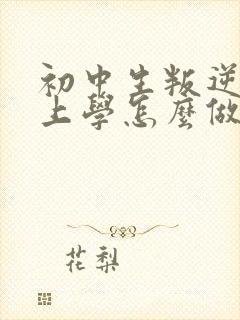 初中生叛逆
上學怎麼做
花梨